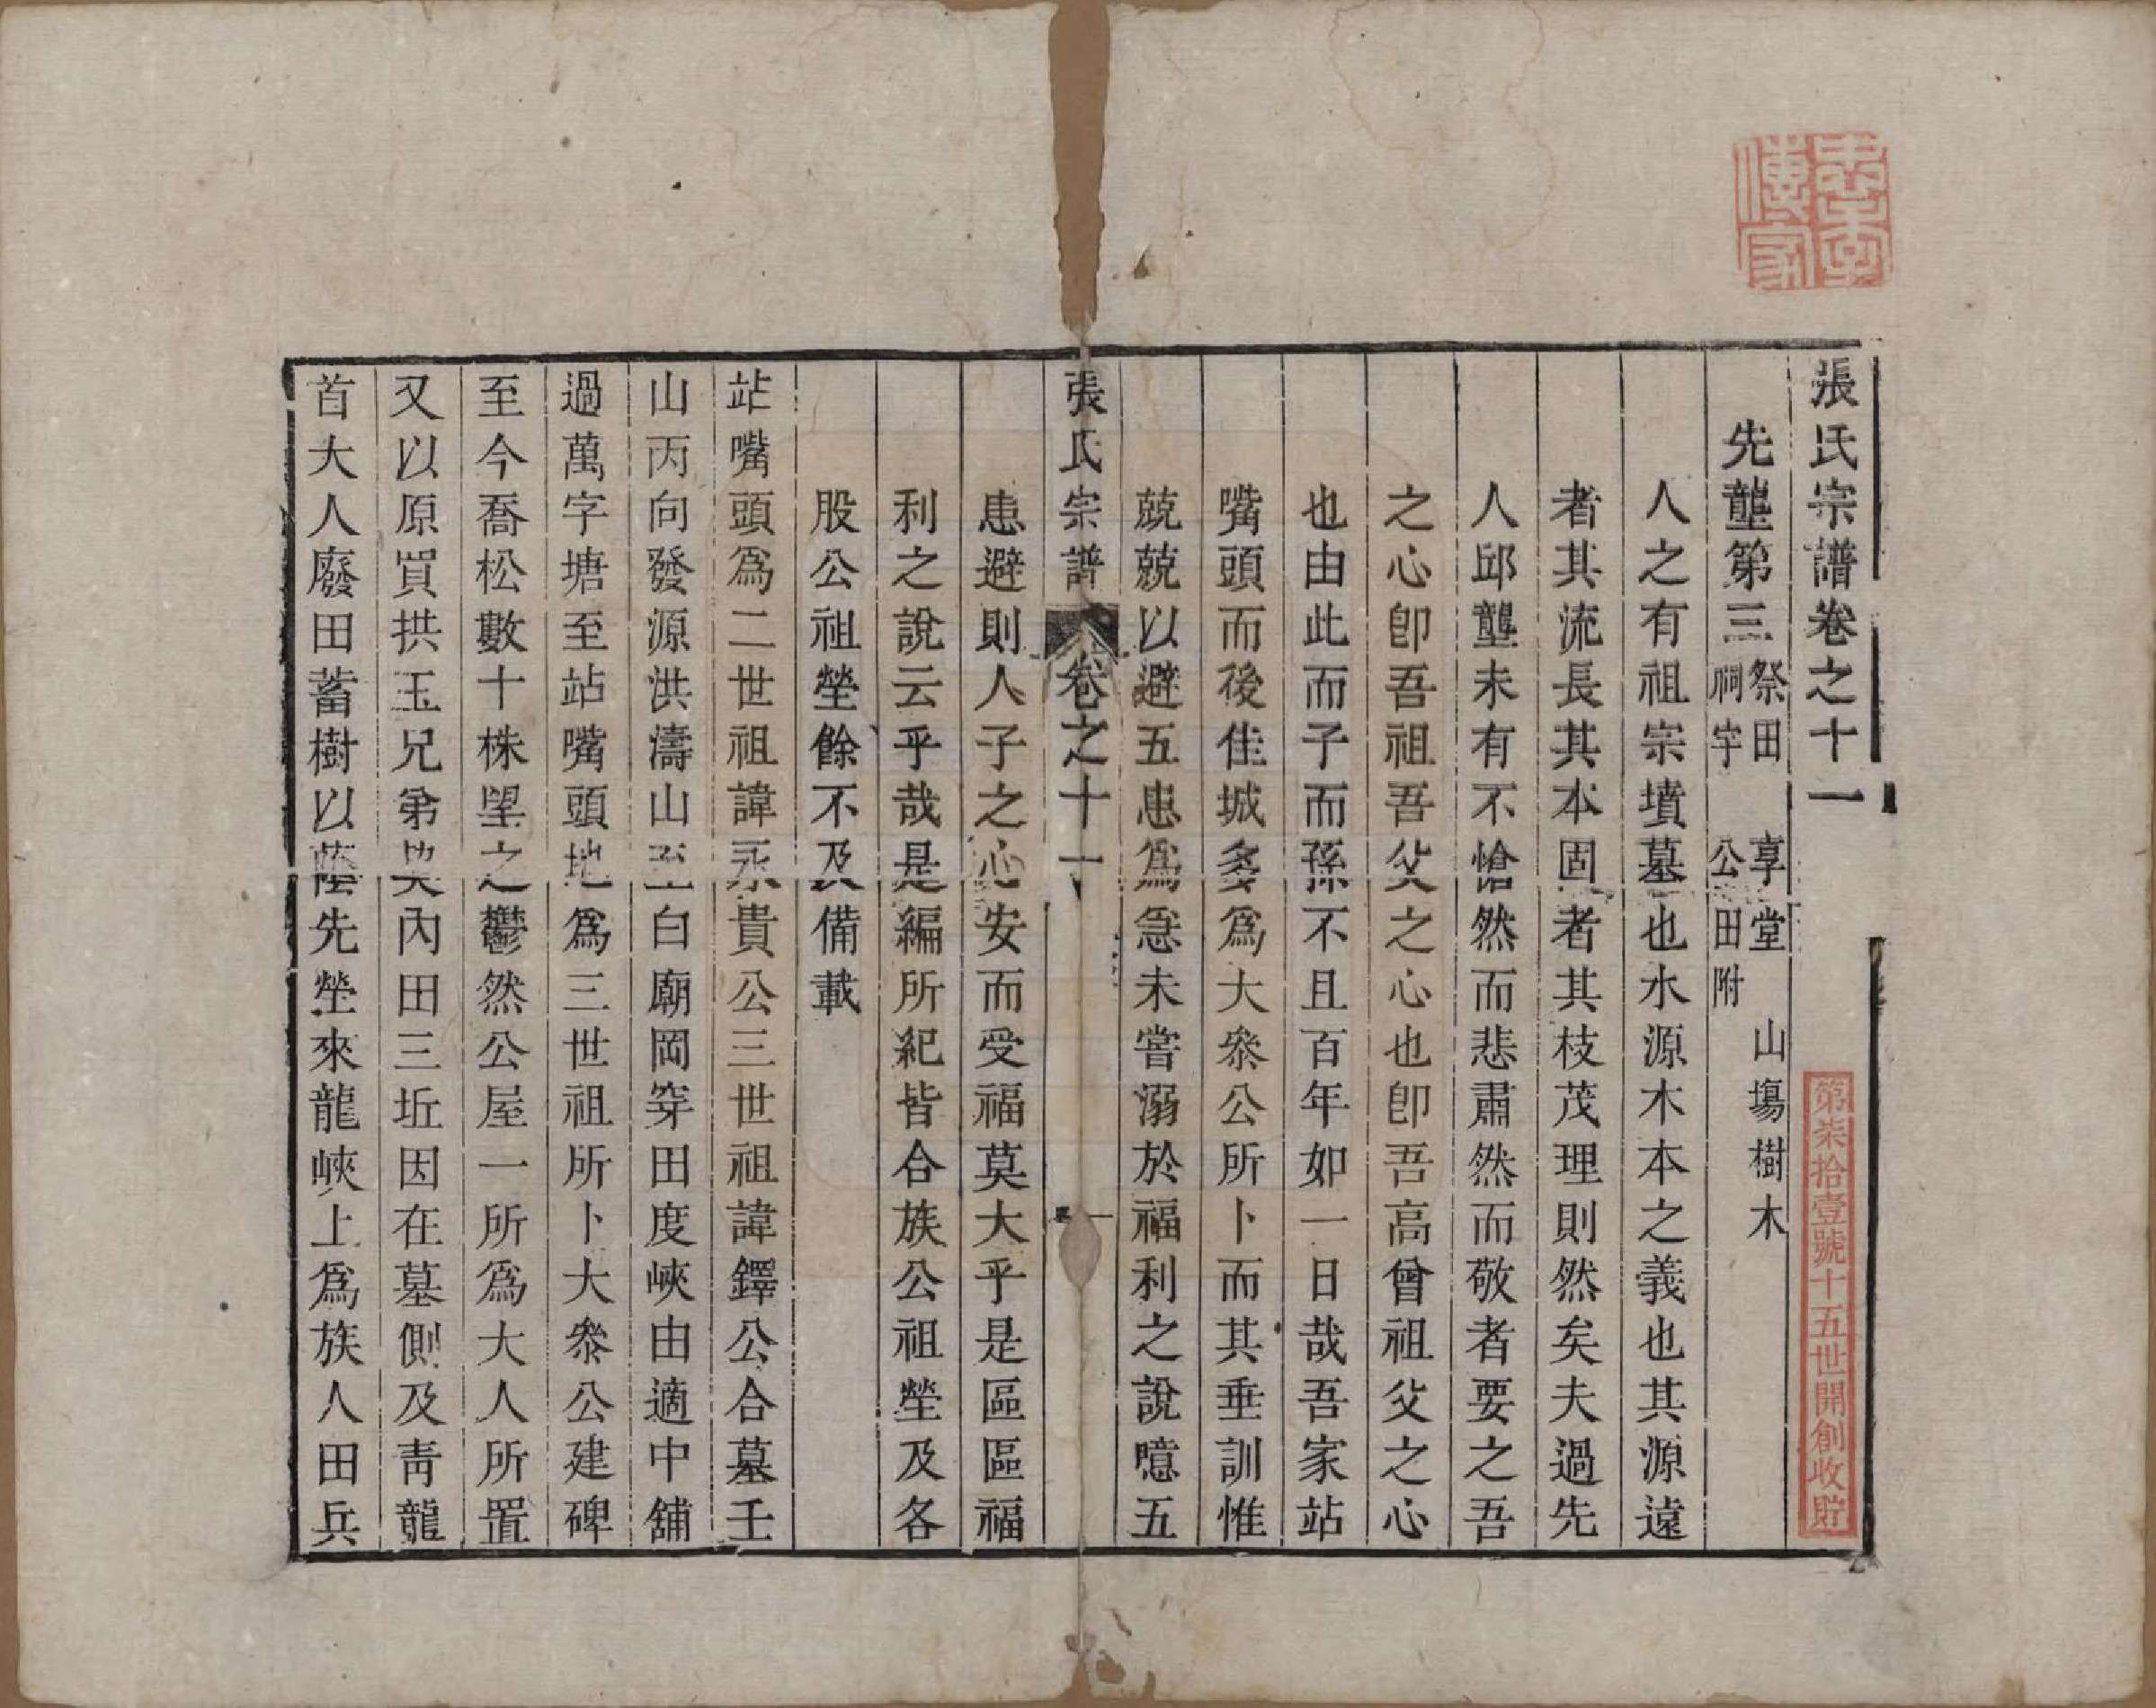 張氏宗譜卷之十一
先壟第三祭田祠宇 享堂公田附 山塲樹木
人之有祖宗墳墓也水源木本之義也其源遠
者其流長其本固者其枝茂理則然矣夫過先
人邱壟未有不愴然而悲肅然而敬者要之吾
之心卽吾祖吾父之心也卽吾高曾祖父之心
也由此而子而孫不且百年如一日哉吾家站
嘴頭而後佳城多爲大叅公所卜而其垂訓惟
兢兢以避五患爲急未嘗溺於福利之說噫五
張氏宗譜 卷之十一 一
患避則人子之心安而受福莫大乎是區區福
利之說云乎哉是編所紀皆合族公祖塋及各
股公祖塋餘不及備載
站嘴頭爲二世祖諱丞貴公三世祖諱鐸公合墓壬
山丙向發源洪濤山至白廟岡穿田度峽由適中舖
過萬字塘至站嘴頭地爲三世祖所卜大叅公建碑
至今喬松數十株望之鬱然公屋一所爲大人所置
又以原買拱玉兄弟 內田三坵因在墓側及靑龍
首大人廢田蓄樹以蔭先塋來龍峽上爲族人田兵
第柒拾壹號十五世開創收貯
忠孝傳家